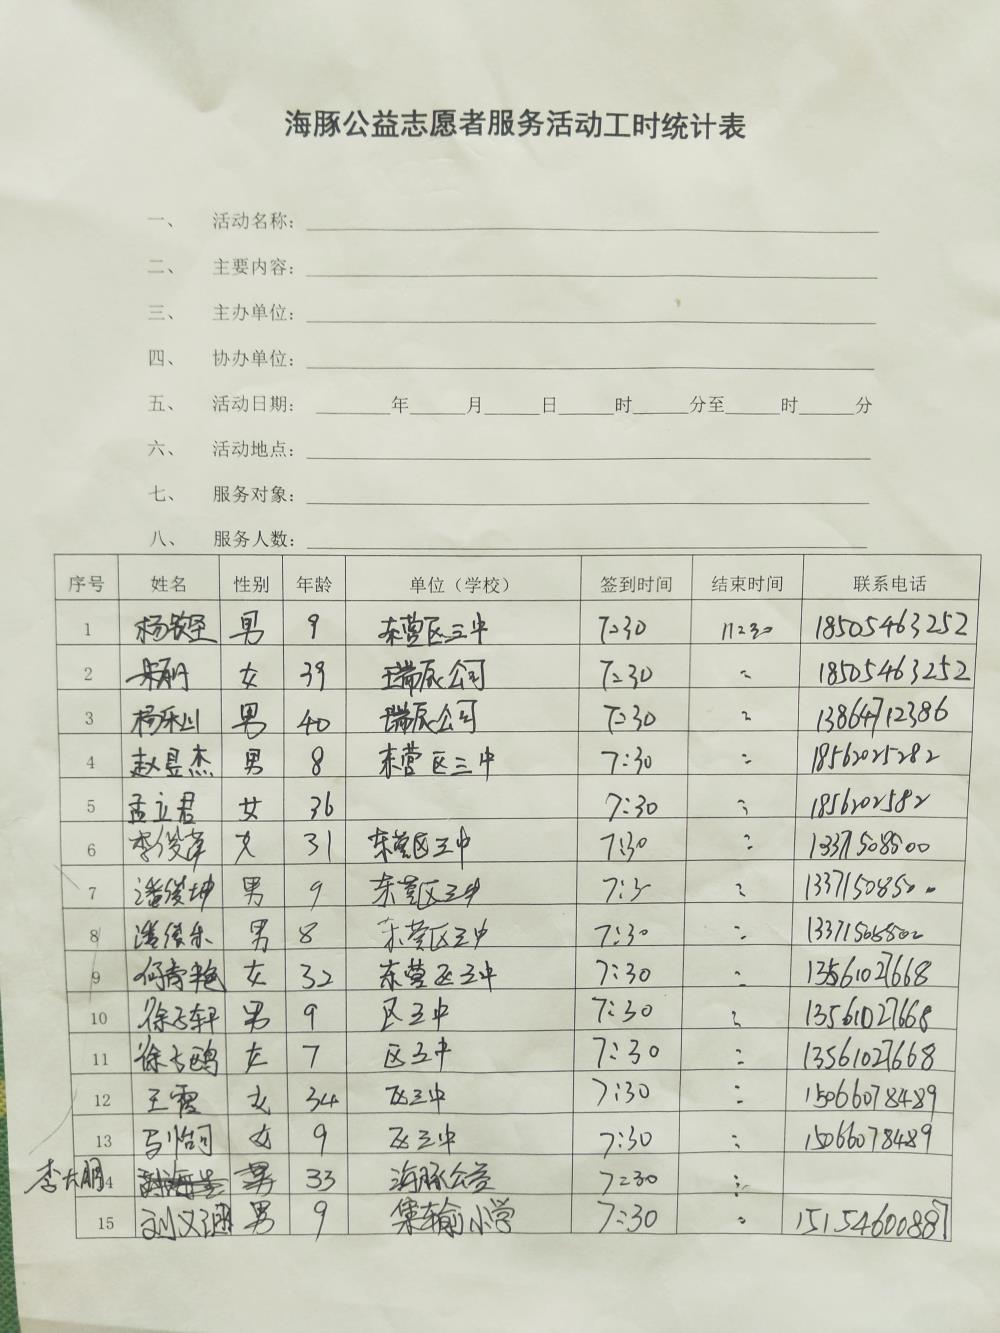 海豚公益志愿者服务活动工时统计表
一、 活动名称：
二、 主要内容：
三、 主办单位：
四、 协办单位：
五、 活动日期： 年 月 日 时 分至 时 分
六、 活动地点：
七、 服务对象：
八、 服务人数：
序号 姓名 性别 年龄 单位（学校） 签到时间 结束时间 联系电话
1 男 9 东营区三中 7:30 11:30 18505463252
2 女 39 瑞辰公司 7:30 18505463252
3 男 40 瑞辰公司 7:30 13864712386
4 赵昱杰 男 8 东营区三中 7:30 18562025282
5 孟立君 女 36 7:30 1856202582
6 女 31 东营区三中 7:30 13371508500
7 潘俊坤 男 9 东营区三中 7:3 133715085
8 潘俊乐 男 8 东营区三中 7:30
9 女 32 东营区三中 7:30 13561027668
10 徐子轩 男 9 区三中 7:30 13561027668
11 女 7 区三中 7:30 13561027668
12 王霞 女 34 区三中 7:30 15066078489
13 女 9 区三中 7:30 15066078489
李大鹏 14 33 海豚公益 7:30
15 男 9 集输小学 7:30 15154600887